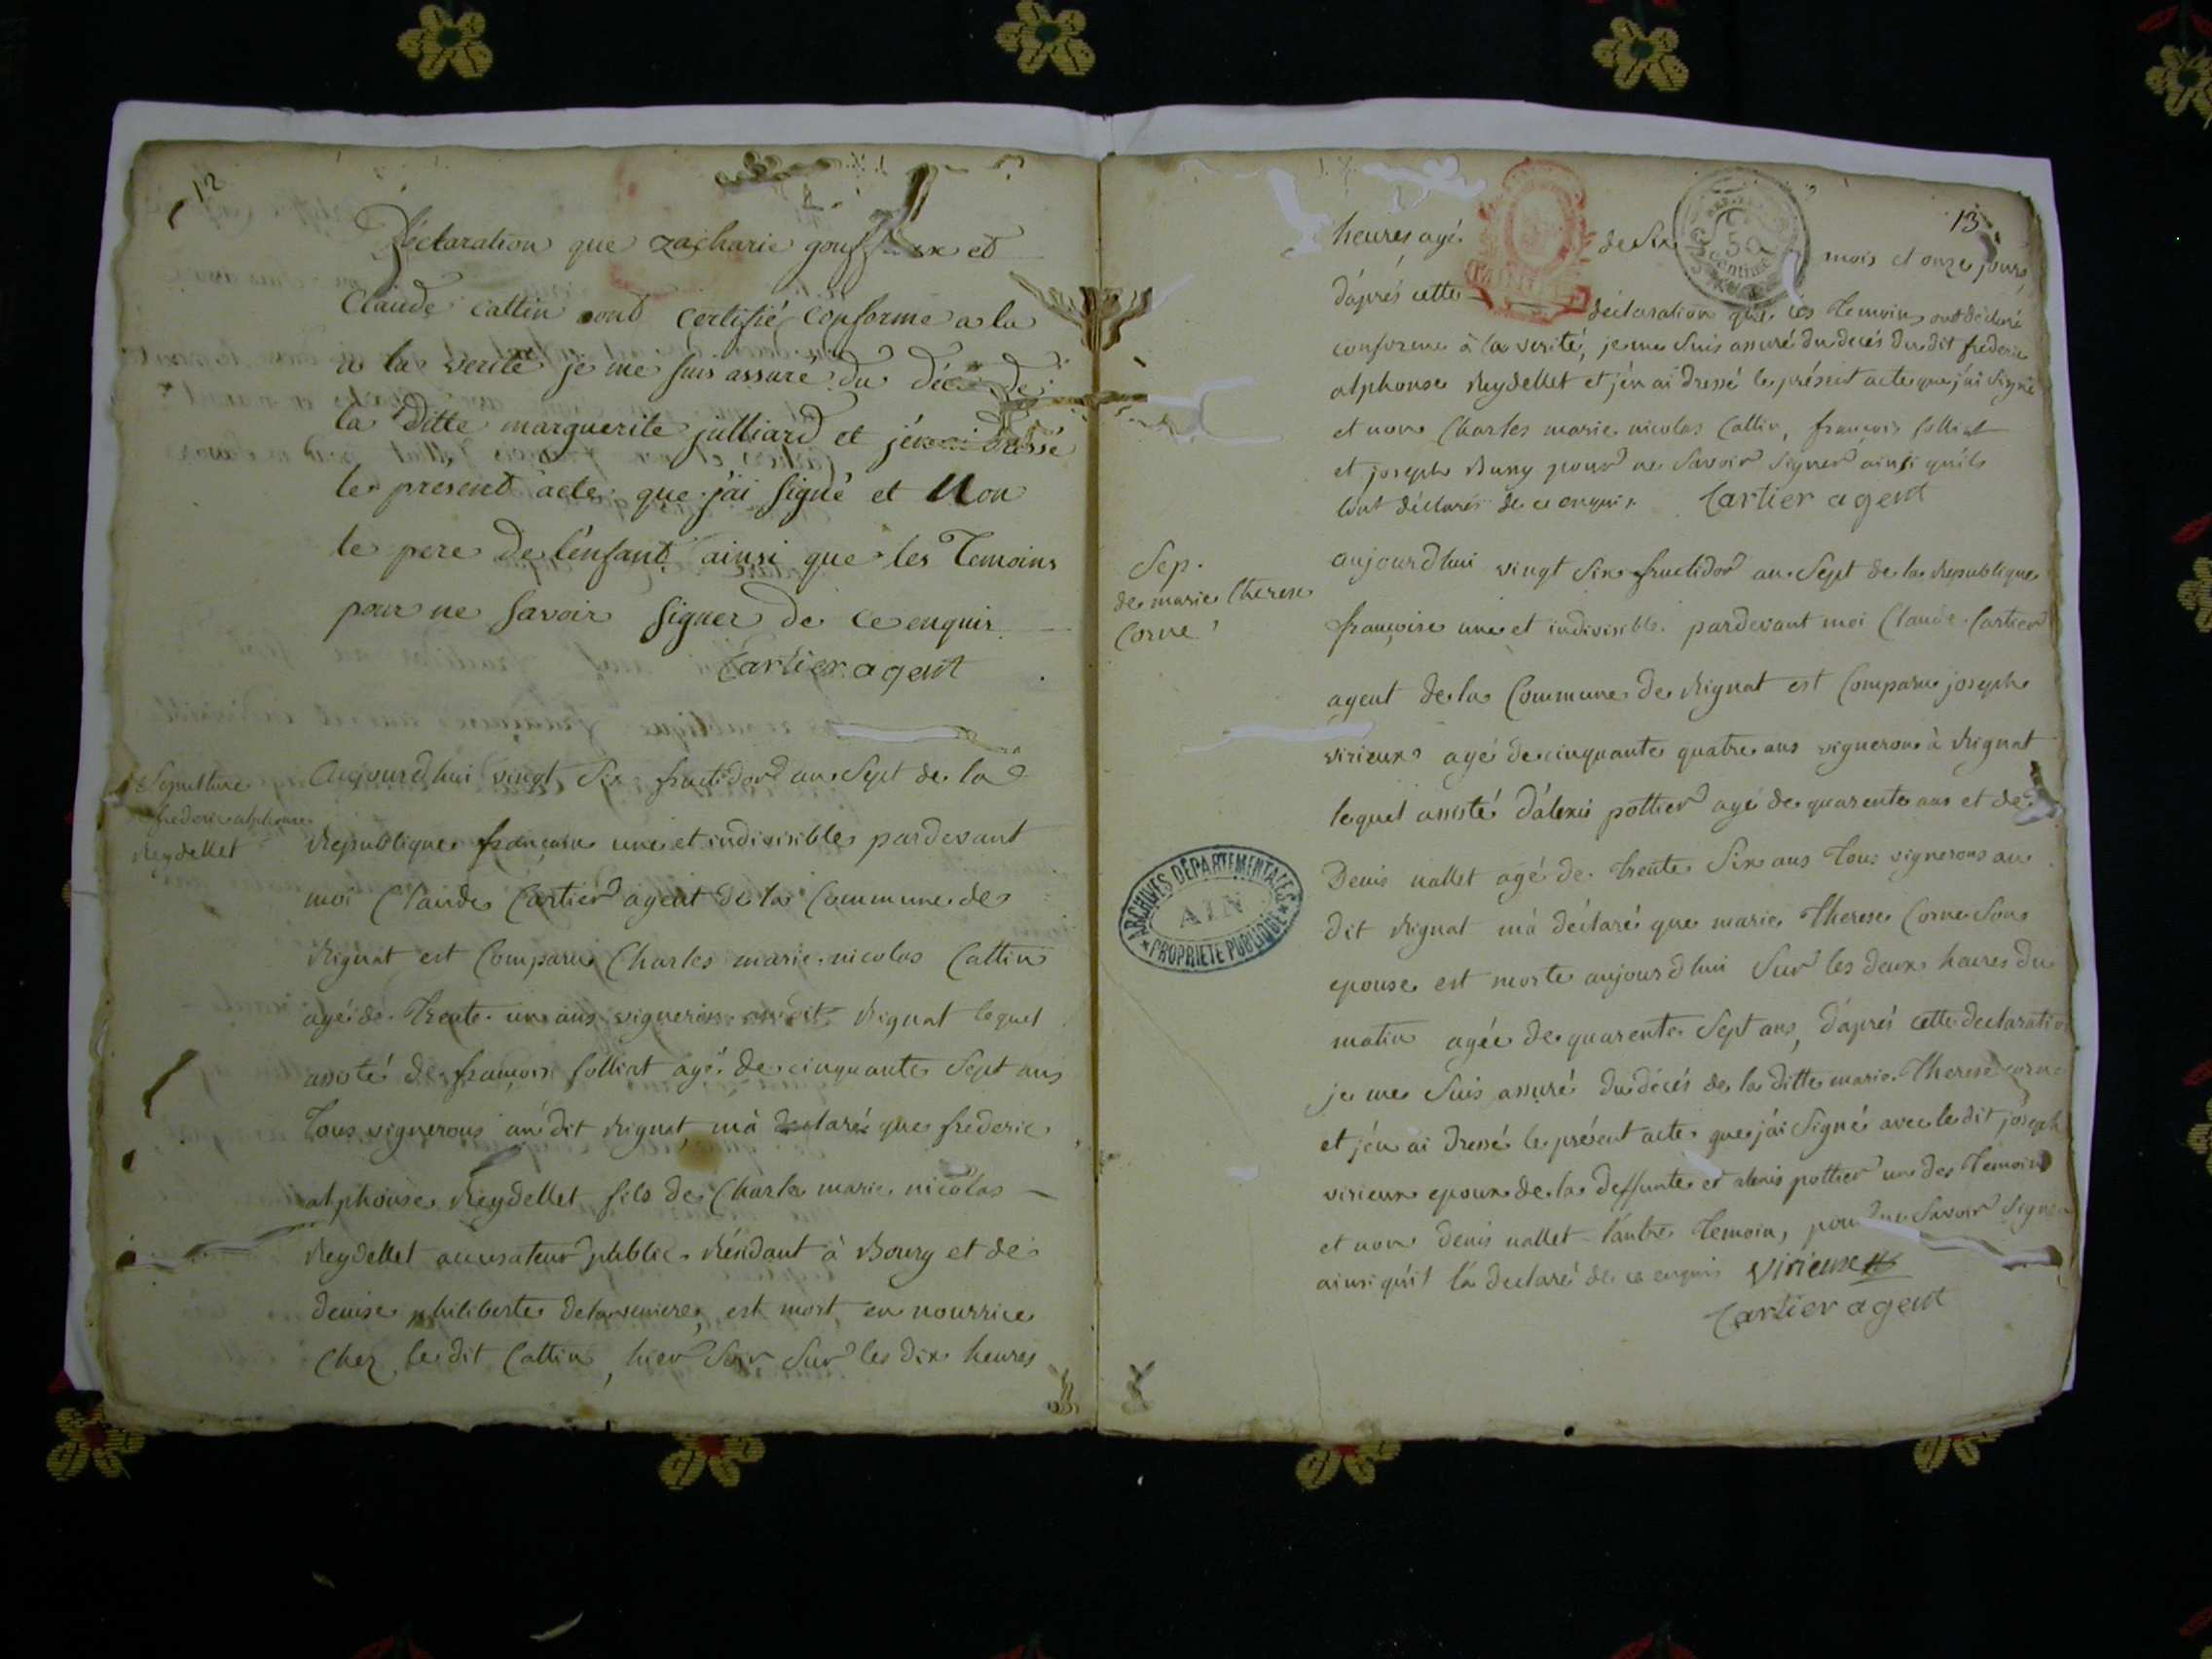 12
Déclaration que zacharie gouffieux et
Claude Cattin ont certifié conforme a la
a la verité je me suis assuré du décé de
la ditte marguerite julliard et j'en ai dressé
le present acte que j'ai signé et Non
le pere de l'enfant ainsi que les temoins
pour ne savoir signer de ce enquis
Cartier agent
Sepulture
frederic alphonse
Reydellet
Aujourd'hui vingt six fructidor an sept de la
Republique françaisse une et indivisible pardevant
moi Claude Cartier agent de la Commune de
Rignat est Comparu Charles marie nicolas Cattin
agé de trente un ans vigneron au dit Rignat lequel
assisté de françois folliat agé de cinquante sept ans
tous vignerons au dit Rignat, m'a declaré que frederic
alphonse Reydellet fils de Charle marie nicolas
Reydellet accusateur public Résidant à Bourg et de
denise philiberte est mort en nourrice
Chez le dit Cattin, hier soir sur les dix heures
13
heures, agé de six mois et onze jours,
d'aprés cette déclaration que les temoins ont déclaré
conforme à la verité, je me suis assuré du decés du dit frederic
alphonse Reydellet et j'en ai dressé le présent acte que j'ai signé
et non Charles marie nicolas Cattin, françois folliat
et joseph Buny pour ne savoir signer ainsi qu'ils
l'ont déclarés de ce enquis Cartier agent
Sep.
de marie therese
Corne
aujourd'hui vingt six fructidor an sept de la Republique
françoise une et indivisible pardevant moi Claude Cartier
agent de la Commune de Rignat est Comparu joseph
virieux agé de cinquante quatre ans vigneron à Rignat
lequel assisté d'alexis pottier agé de quarente ans et de
Denis nallet agé de trente six ans tous vignerons au
dit Rignat m'a déclaré que marie therese Corne son
epouse est morte aujourd'hui sur les deux heures du
matin agée de quarente sept ans, d'aprés cette declaration
je me suis assuré du décés de la ditte marie therese corne
et j'en ai dressé le présent acte que j'ai signé avec le dit joseph
virieux epoux de la deffunte et alexis pottier un des temoins
et non denis nallet l'autre temoin, pour ne savoir signer
ainsi qu'il l'a declaré de ce enquis virieux
Cartier agent
50 centimes
ARCHIVES DÉPARTEMENTALES
AIN
PROPRIÉTÉ PUBLIQUE